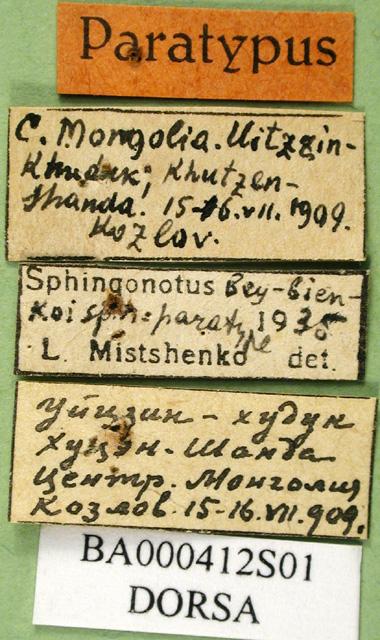 Paratypus
C. Mongolia. Uitzzin-
Khuduk; Khutzen-
Shanda. 15-16.VII.1909.
Kozlov.
Sphingonotus Bey-Bien-
koi spn. paratype 1935
L. Mistshenko det.
Уйцзин - худук
Хуцэн - Шанда
Центр. Монголия
Козлов. 15-16.VII.909.
BA000412S01
DORSA